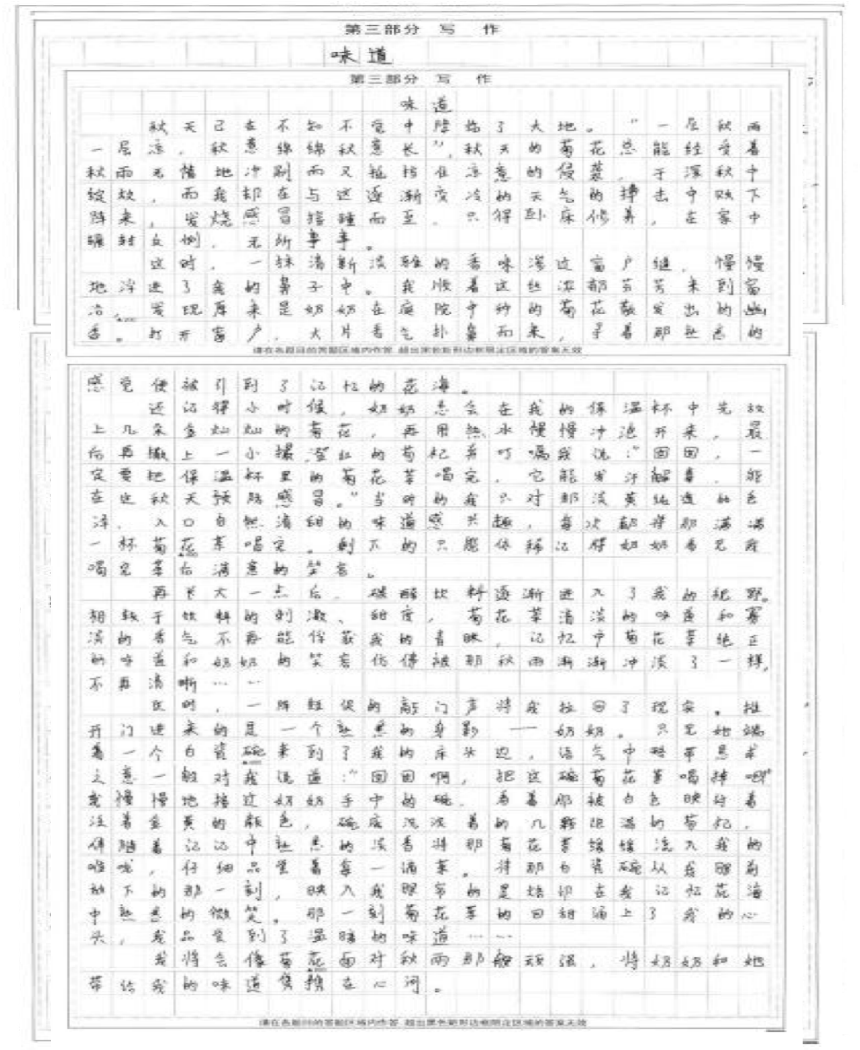 第三部分 写 作
味 道
第三部分 写 作
味 道
秋天已在不知不觉中降临了大地。“一层秋雨
一层凉,秋意绵绵秋意长”,秋天的菊花总能经受着
秋雨无情地冲刷而又抵挡住凉意的侵袭,于深秋中
绽放,而我却在与这逐渐变冷的天气的搏击中败下
阵来,发烧感冒接踵而至,只得卧床修养,在家中
辗转反侧,无所事事。
这时,一抹清新淡雅的香味渗过窗户缝,慢慢
地浮进了我的鼻子中。我顺着这丝浓郁芬芳来到窗
沿,发现原来是奶奶在庭院中种的菊花散发出的幽
香。打开窗户,大片香气扑鼻而来,寻着那熟悉的
请在各题目的答题区域内作答,超出黑色矩形边框限定区域的答案无效
感觉便被引到了记忆的花海。
还记得小时候,奶奶总会在我的保温杯中先放
上几朵金灿灿的菊花,再用热水慢慢冲泡开来,最
后再撒上一小撮澄红的枸杞并叮嘱我说:“囡囡,一
定要把保温杯里的菊花茶喝完,它能发汗解毒,能
在这秋天预防感冒。”当时的我只对那淡黄纯透的色
泽,入口自然清甜的味道感兴趣,每次都得那满满
一杯菊花茶喝完。剩下的只能依稀记得奶奶看见我
喝完茶后满意的笑容。
再长大一点后,碳酸饮料逐渐进入了我的视野。
相较于饮料的刺激、甜度,菊花茶清淡的味道和寡
淡的香气不再能俘获我的青睐,记忆中菊花茶纯正
的味道和奶奶的笑容仿佛被那秋雨渐渐冲淡了一样,
不再清晰……
这时,一阵短促的敲门声将我拉回了现实。推
开门进来的是一个熟悉的身影——奶奶。只见她端
着一个白瓷碗来到了我的床头边,语气中略带恳求
之意一般对我说道:“囡囡啊,把这碗菊花茶喝掉吧”
我慢慢地接过奶奶手中的碗,看着那被白色映衬着
泛着金黄的颜色,碗底沉淀着的几颗饱满的枸杞,
伴随着记忆中熟悉的淡香将那菊花茶缓缓流入我的
喉咙,仔细品尝着每一滴茶。待那白瓷碗从我眼前
放下的那一刻,映入我眼帘的是烙印在我记忆花海
中熟悉的微笑。那一刻菊花茶的回甜涌上了我的心
头,我品尝到了温暖的味道……
我将会像菊花面对秋雨那般顽强,将奶奶和她
带给我的味道携在心间。
请在各题目的答题区域内作答,超出黑色矩形边框限定区域的答案无效